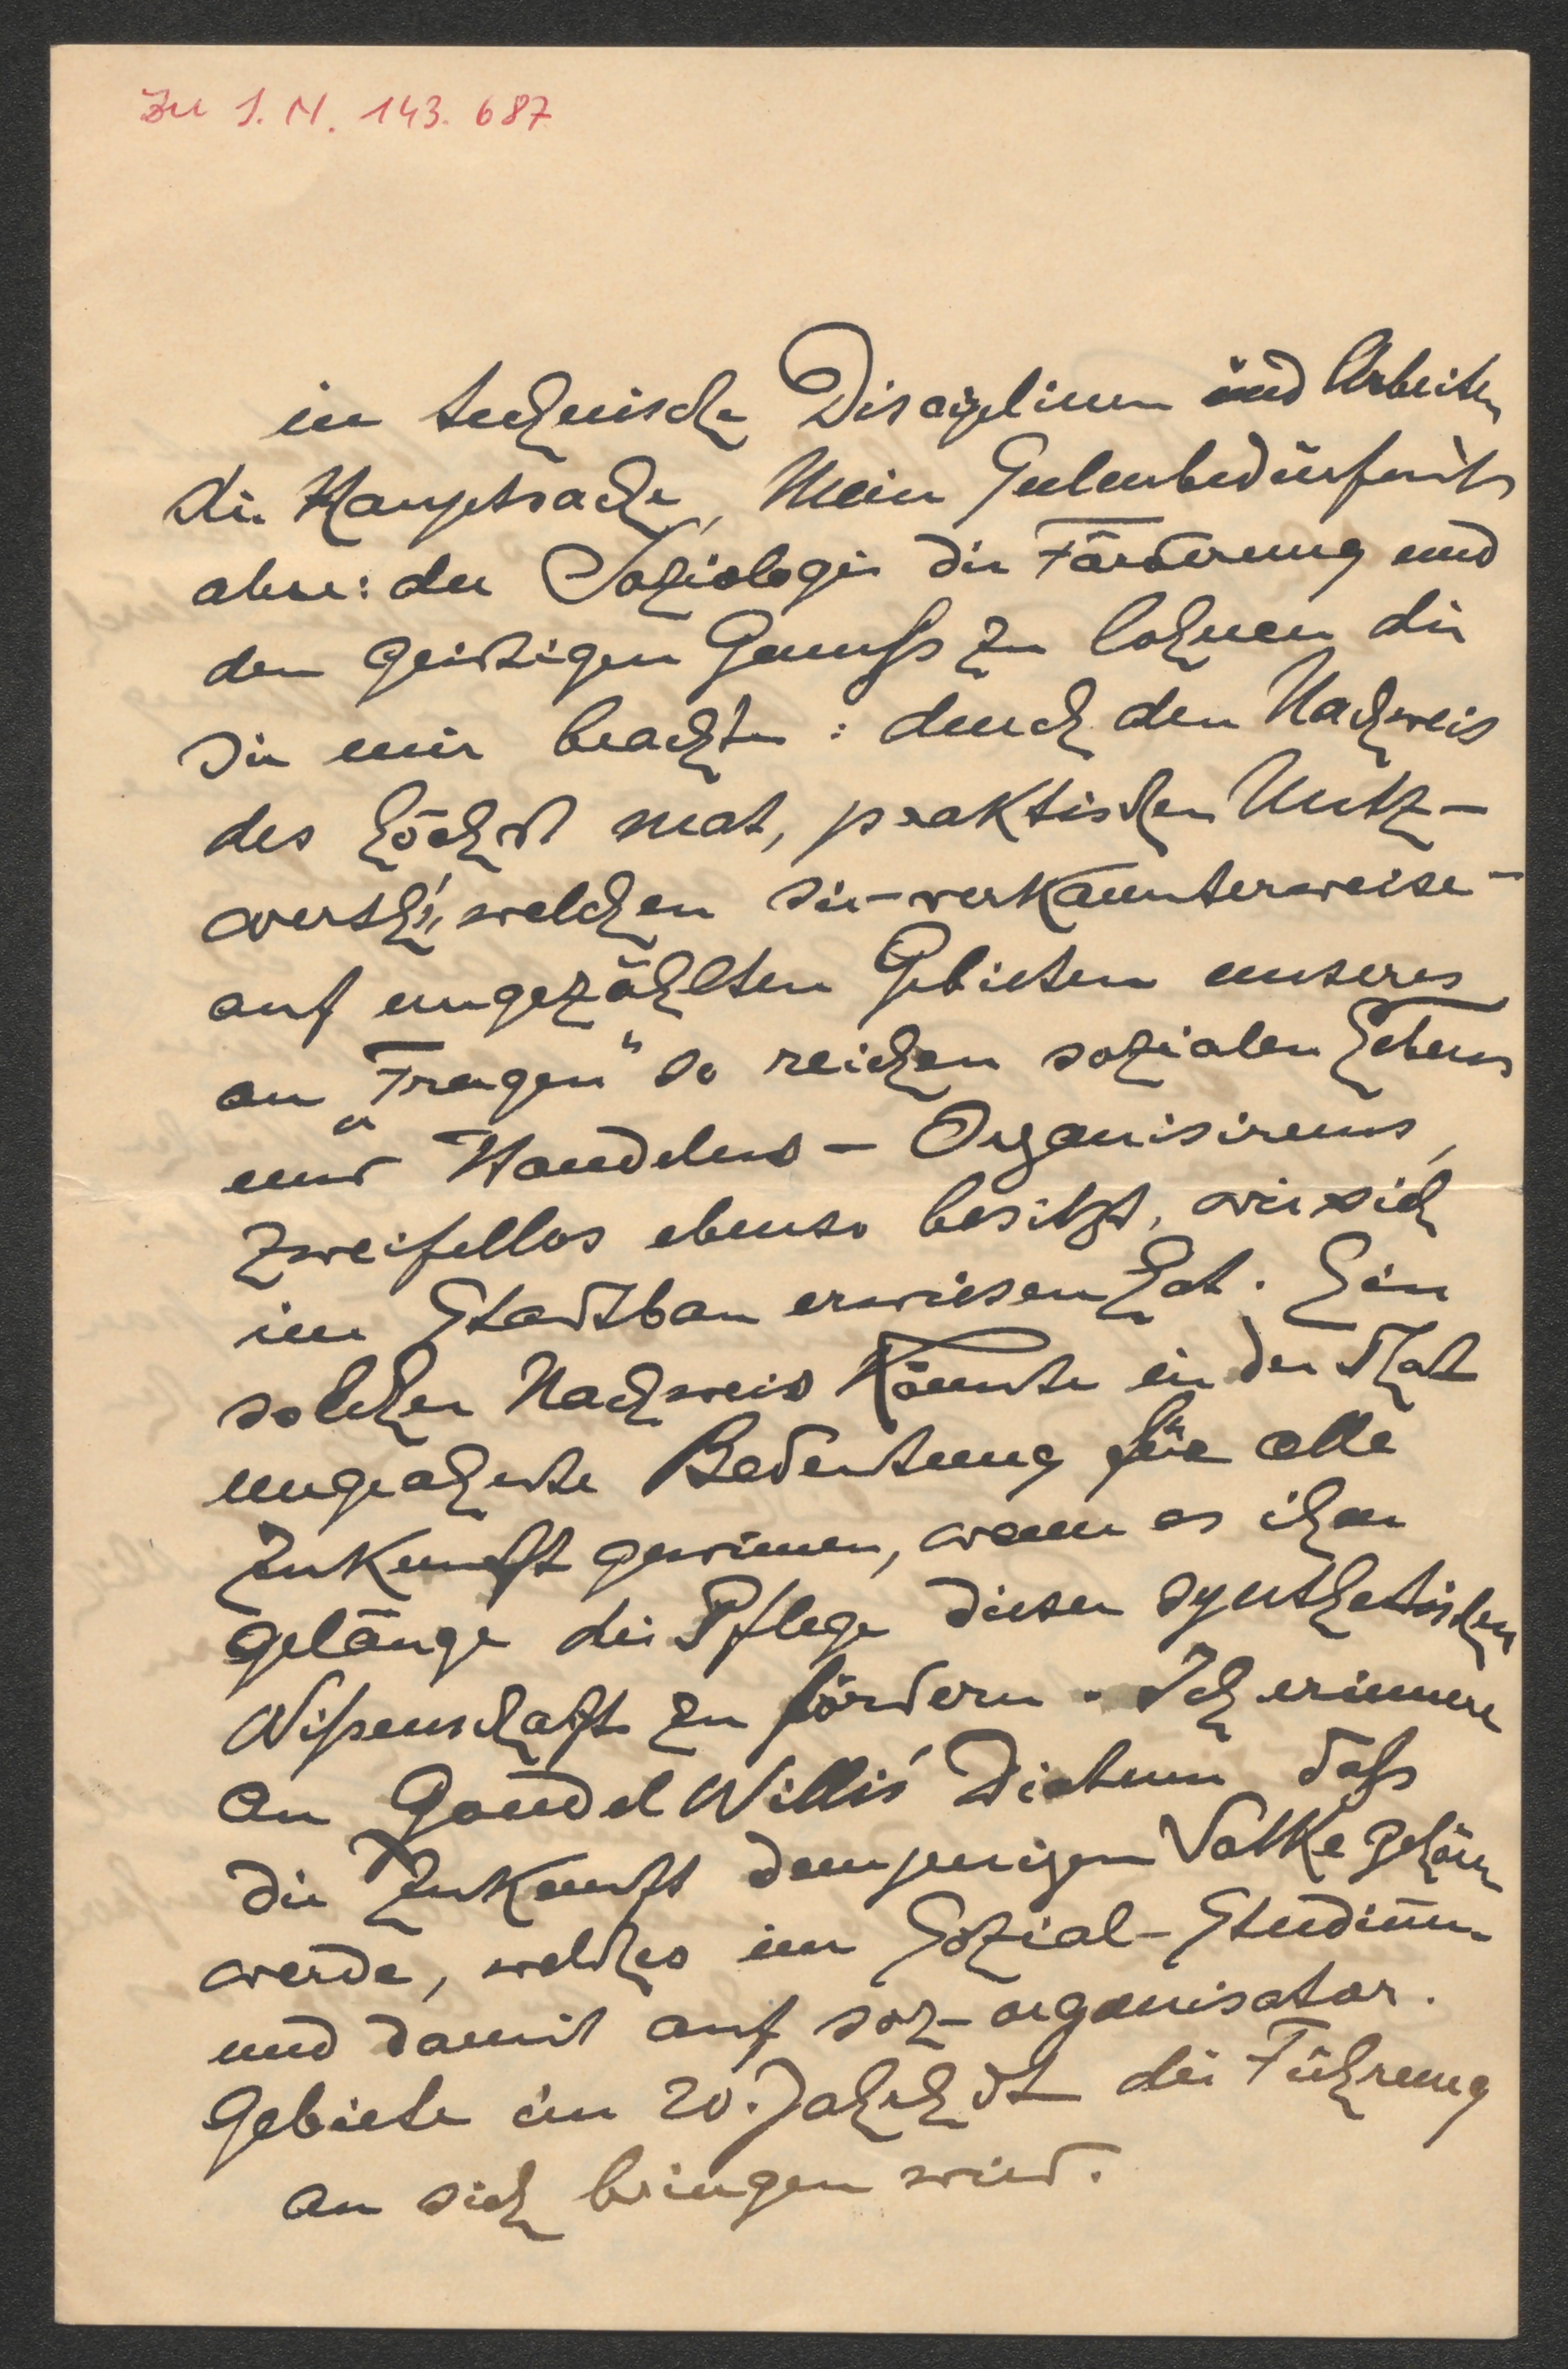 Zu I.N. 143.687
in technische Disciplinen und Arbeiten
die Hauptsache, Mein Seelenbedürfniß
aber: der Soziologie die Förderung und
den geistigen Genuß zu lohnen die
sie mir brachte: durch den Nachweis
des höchst mat, praktischen Nutz-
werths, welchen sie - verkannterweise -
auf ungezählten Gebieten unseres
an „Fragen" so reichen sozialen Lebens
und Handelns - Organisirens,
zweifellos ebenso besitzt, wie sich
im Stadtbau erwiesen hat. Ein
solcher Nachweis könnte in der That
ungeahnte Bedeutung für alle
Zukunft gewinnen, wenn es ihm
gelänge die Pflege dieser synthetischen
Wißenschaft zu fördern. Ich erinnere
an Willis' Dictum daß
die Zukunft demjenigen Volke gehören
werde, welches im Sozial-Studium
und damit auf soz-organisator.
Gebiete im 20. Jahrhdt die Führung
an sich bringen wird.